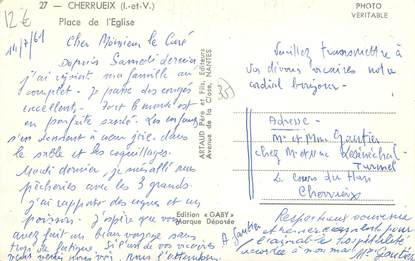 12€
27 - CHERRUEIX (I.-et-V.)
Place de l'Eglise
PHOTO
VERITABLE
14/7/61
Cher Monsieur le Curé
Depuis Samedi dernier
j'ai rejoint ma famille au
complet. Je passe des congés
excellents. Tout le monde est
en parfaite santé. Les enfants
s'en donnent à cœur joie dans
le sable et les coquillages.
Mardi dernier je suis allé aux
pêcheries avec les 3 grands.
j'ai rapporté des coques et un
poisson. J'espère que vous
avez fait un beau voyage sans
trop de fatigue. Si l'un de vos vicaires
vient nous voir, nous l'attendons
ARTAUD Père et Fils, Editeurs
Avenue de la Close, NANTES
35
Edition "GABY"
Marque Déposée
Veuillez transmettre à
vos dévoués vicaires notre
cordial bonjour.
A. Gautier
Adresse
Mr et Mme Gautier
chez Mr et Mme
Le cours du
Cherrueix
Respectueux souvenir
et remerciements pour
l'hospitalité
accordée à